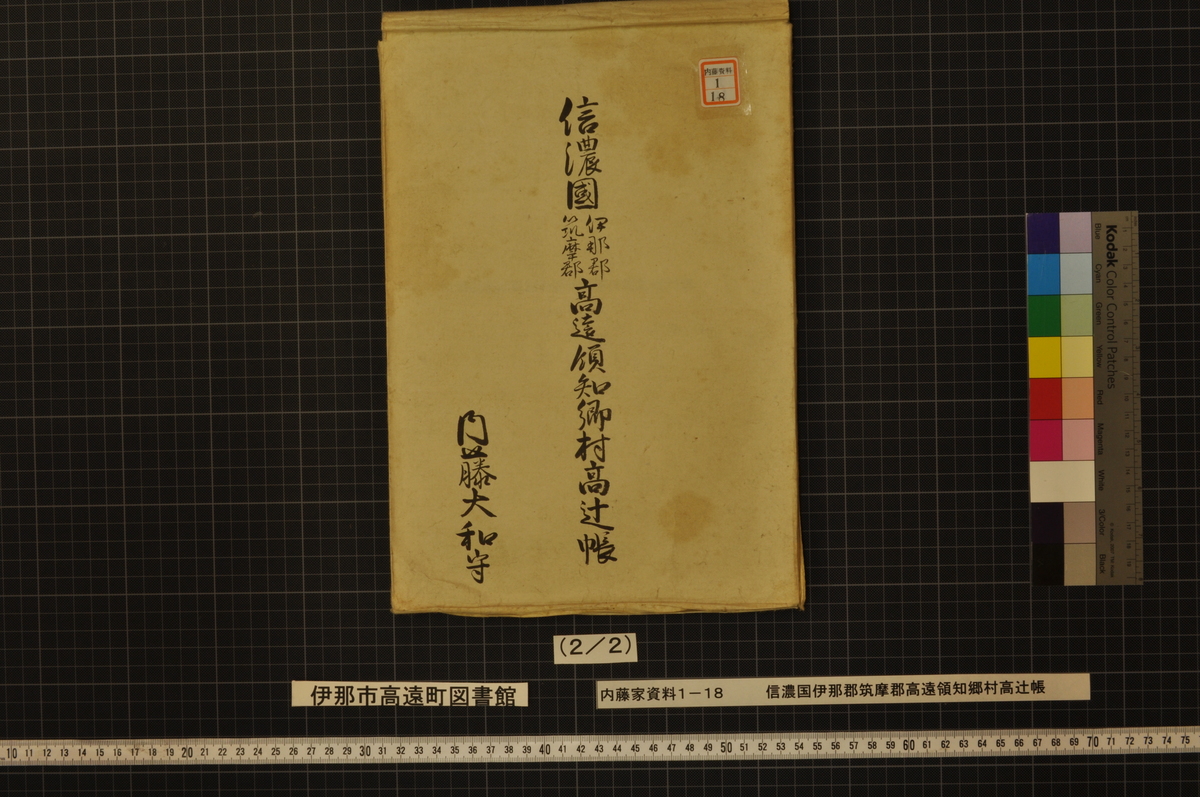 内藤資料
1
18
信濃國伊那郡筑摩郡高遠領知郷村高辻帳
内藤大和守
(2/2)
伊那市高遠町図書館
内藤家資料1-18 信濃国伊那郡筑摩郡高遠領知郷村高辻帳
Kodak Color Control Patches
Blue
Cyan
Green
Yellow
Red
Magenta
White
3/Color
Black
10 11 12 13 14 15 16 17 18 19 20 21 22 23 24 25 26 27 28 29 30 31 32 33 34 35 36 37 38 39 40 41 42 43 44 45 46 47 48 49 50 51 52 53 54 55 56 57 58 59 60 61 62 63 64 65 66 67 68 69 70 71 72 73 74 75